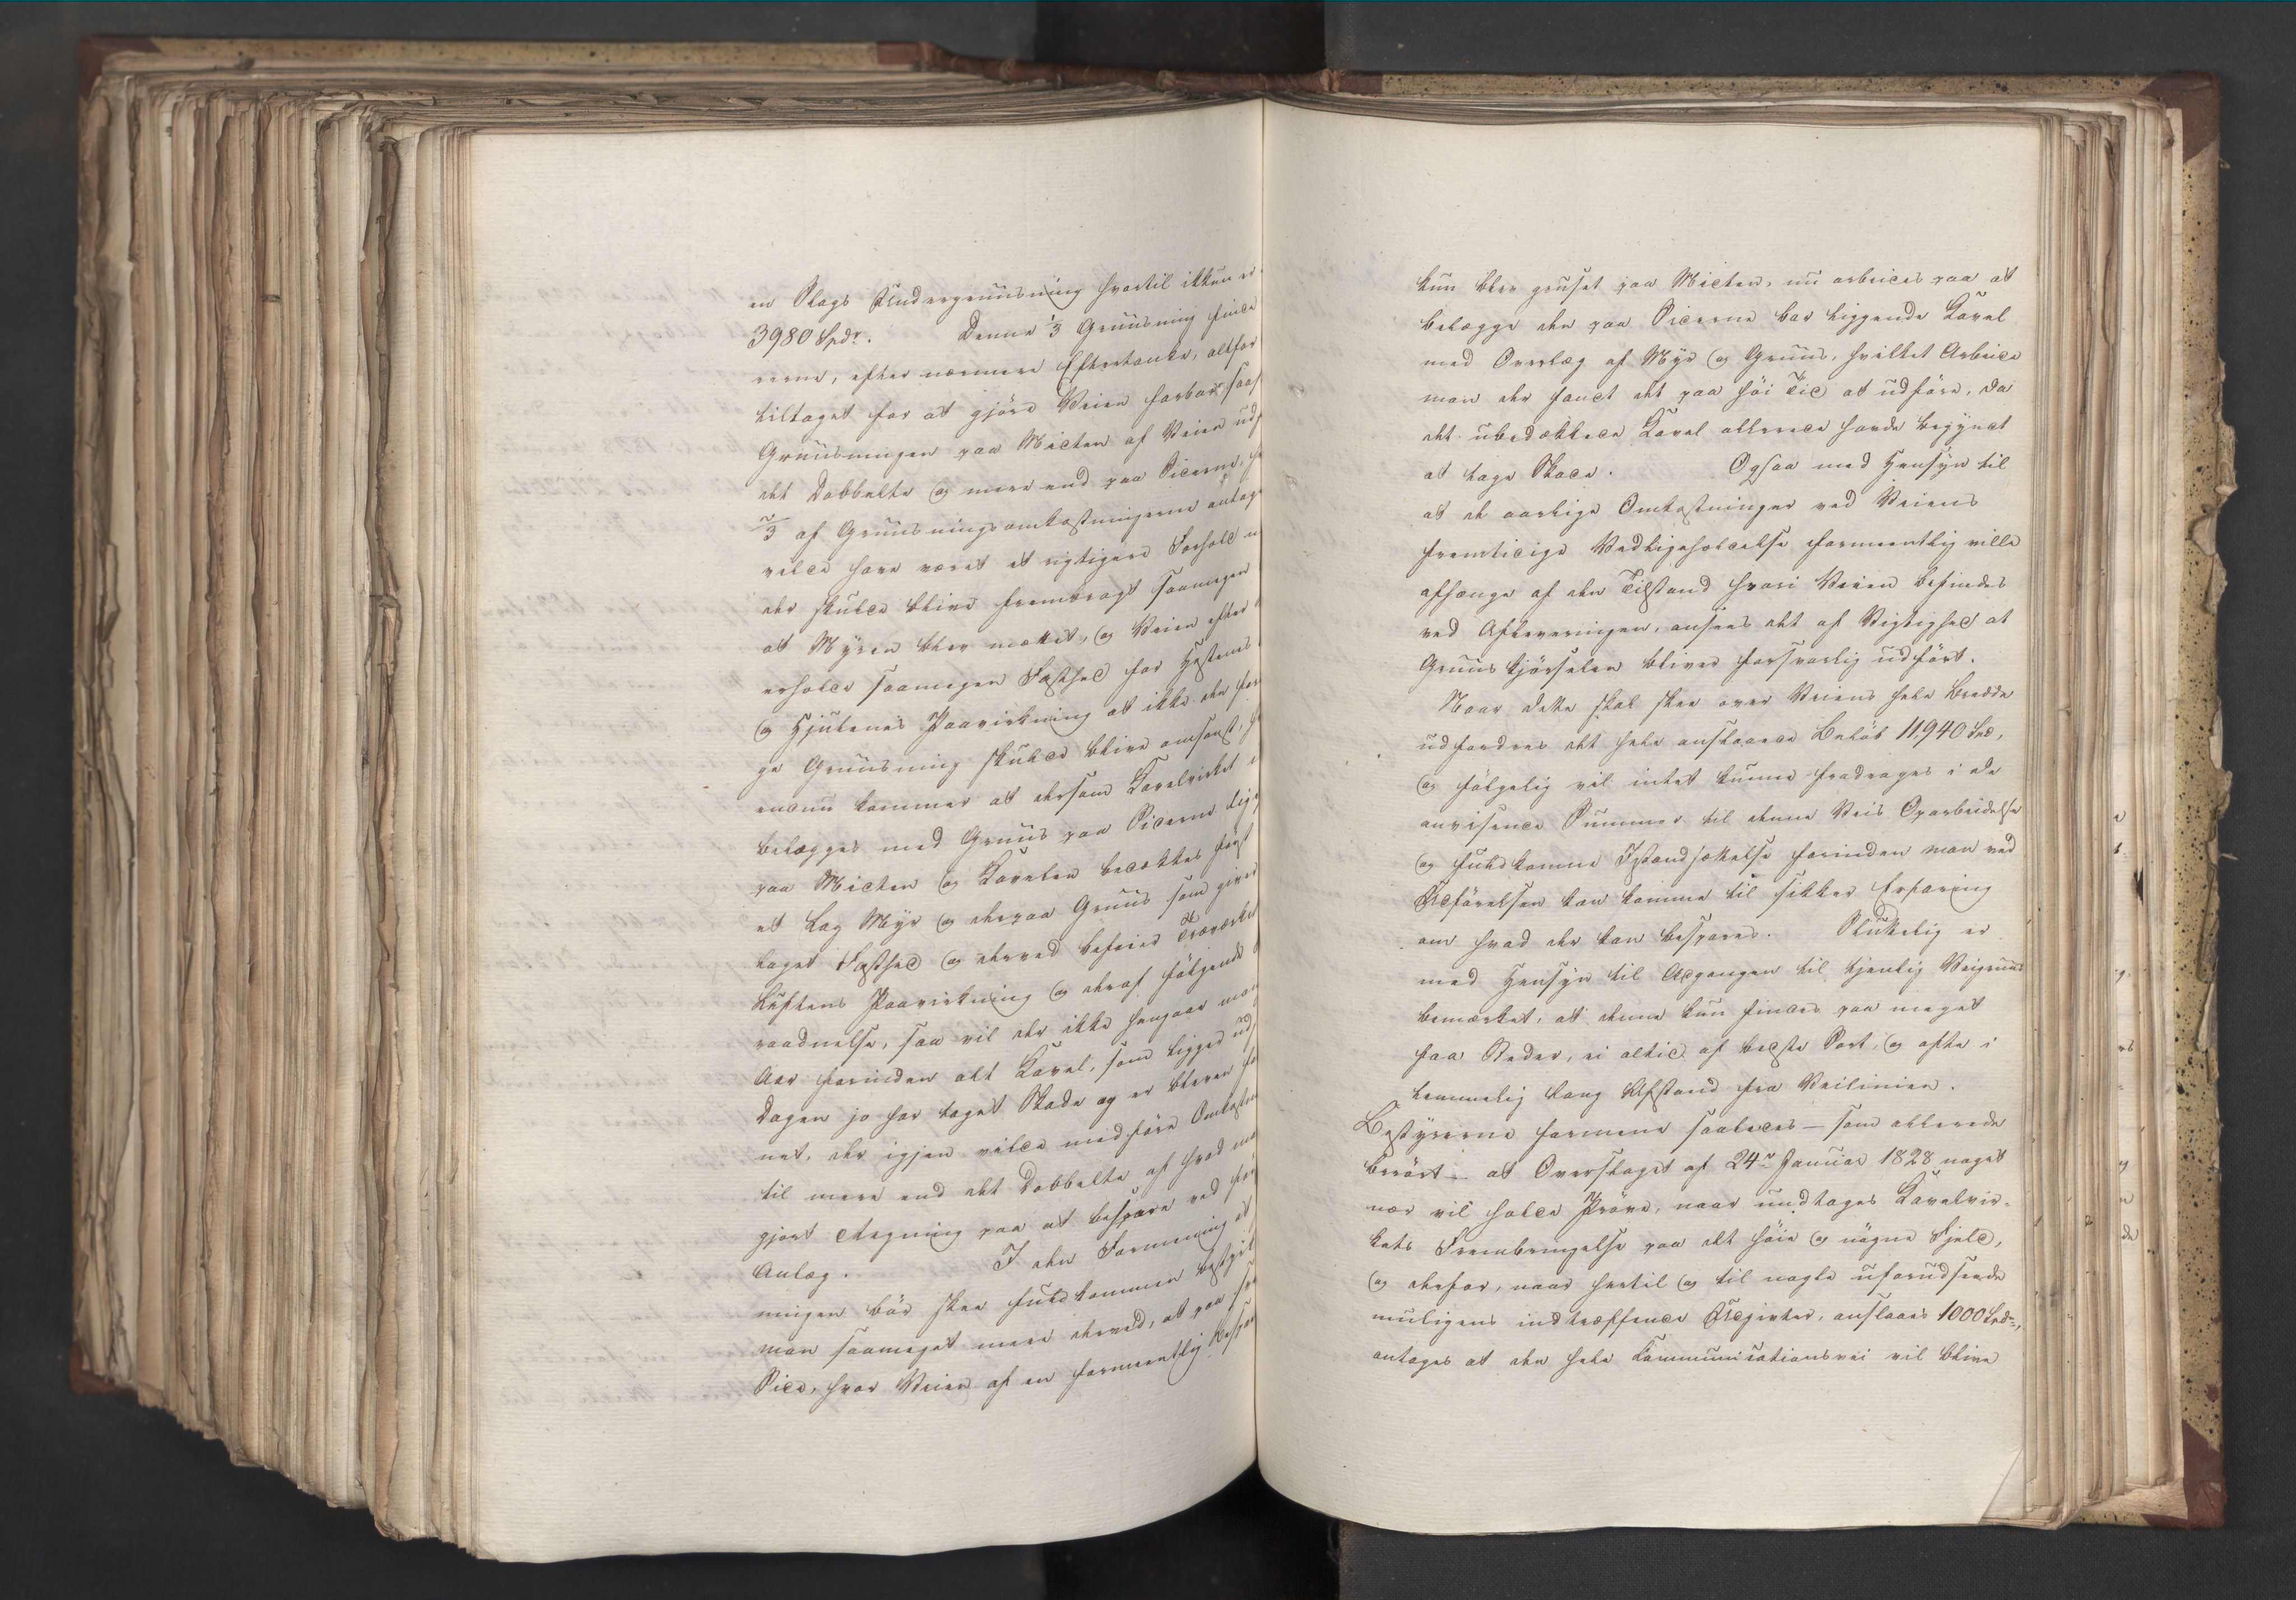 en Slags Undergruusning hvortil ikkun er
3980 Spdr. Denne 1/3 Gruusning finde
rerne, efter nærmere Eftertanke, altfor
tiltaget for at gjöre Veien farbar saa
Gruusningen paa Midten af Veien ud
det Dobbelte og mere end paa Siderne,
2/3 af Gruusningsomkostningerne antage
velde have været et rigtigere Forhold
der skulde blive frembragt saamegen
at Myren blev mættet, og Veien efter
erholde saamegen Fasthed for Hestenes
og Hjulenes Paavirkning at ikke den for
ge Gruusning skulde blive omsonst,
endnu kommer at dersom Kavelvirket
belægges med Gruus paa Siderne lige
paa Midten og Kavelen bedækkes först
et Lag Myr og derpaa Gruus som giver
laget Fasthed og derved befries Træværket
Luftens Paavirkning og deraf fölgende
raadnelse, saa vil der ikke hengaae
Aar forinden alt Kavel, som ligger ud
Dagen jo har taget Skade og er bleven
net, der igjen vilde medföre Omkostn
til mere end det Dobbelte af hvad
gjort Regning paa at bespare ved
Anlæg. I den Formening at
ningen bör skee fuldkommen bestyrk
man saameget mere derved, at paa
Side, hvor Veien af en formeentlig Bespa
kun blev gruset paa Midten, nu arbeides paa at
belægge den paa Siderne bar liggende Kavel
med Overlæg af Myr og Gruus, hvilket Arbeide
man der fandt det paa höi Tid at udföre, da
det ubedækkede Kavel allerede havde begyndt
at tage Skade. Ogsaa med Hensyn til
at de aarlige Omkostninger ved Veiens
fremtidige Vedligeholdelse formeentlig ville
afhænge af den Tilstand hvori Veien befindes
ved Afleveringen, ansees det af Vigtighed at
Gruuskjörselen bliver forsvarlig udfört.
Naar dette skal skee over Veiens hele Bredde
udfordres det hele anslaaede Belöb 11,940 Spd,
og fölgelig vil intet kunne fradrages i de
anviisende Summer til denne Veis Oparbeidelse
og fuldkomne Istandsættelse forinden man ved
Udförelsen kan komme til sikker Erfaring
om hvad der kan bespares. Slutelig er
med Hensyn til Adgangen til tjenlig Veigruus
bemærket, at denne kun findes paa meget
faa Steder, ei altid af bedste Sort, og ofte i
temmelig lang Afstand fra Veilinien.
Bestyrerne formene saaledes – som allerede
berört – at Overslaget af 24de Januar 1828 noget
nær vil holde Pröve, naar undtages Kavelvir-
kets Frembringelse paa det höie og nögne Fjeld,
og derfor, naar hertil og til nogle uforudseede
muligens indtræffende Udgivter, anslaaes 1000 Spd,
antages at den hele Communicationsvei vil blive